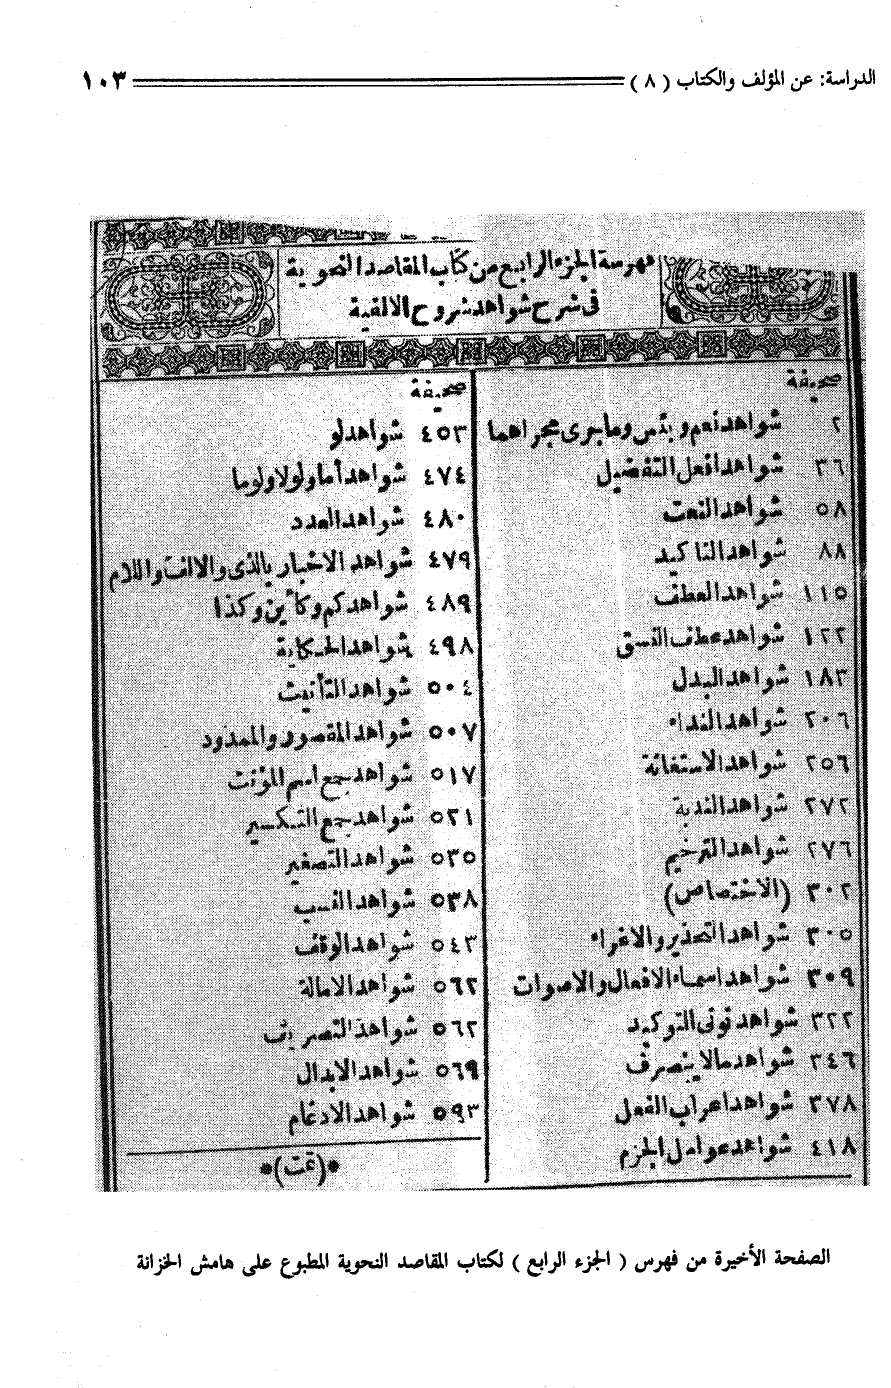 الدراسة: عن المؤلف والكتاب ( ٨ ) ١٠٣
فهرسة الجزء الرابع من كتاب المقاصد النحوية
فى شرح شواهد شروح الالفية
صحيفة
٢ شواهد نعم وبئس وما جرى مجراهما
٣٦ شواهد افعل التفضيل
٥٨ شواهد النعت
٨٨ شواهد التاكيد
١١٥ شواهد العطف
١٢٢ شواهد عطف النسق
١٨٣ شواهد البدل
٢٠٦ شواهد النداء
٢٥٦ شواهد الاستغاثة
٢٧٢ شواهد الندبة
٢٧٦ شواهد الترخيم
٣٠٢ (الاختصاص)
٣٠٥ شواهد التحذير والاغراء
٣٠٩ شواهد اسماء الافعال والاصوات
٣٢٢ شواهد نونى التوكيد
٣٤٦ شواهد مالا ينصرف
٣٧٨ شواهد اعراب الفعل
٤١٨ شواهد عوامل الجزم
صحيفة
٤٥٣ شواهد لو
٤٧٤ شواهد أما ولولا ولوما
٤٨٠ شواهد العدد
٤٧٩ شواهد الاخبار بالذى والالف واللام
٤٨٩ شواهد كم وكأين وكذا
٤٩٨ شواهد الحكاية
٥٠٤ شواهد التأنيث
٥٠٧ شواهد المقصور والممدود
٥١٧ شواهد جمع اسم المؤنث
٥٢١ شواهد جمع التكسير
٥٣٥ شواهد التصغير
٥٣٨ شواهد النسب
٥٤٣ شواهد الوقف
٥٦٢ شواهد الامالة
٥٦٢ شواهد التصريف
٥٦٩ شواهد الابدال
٥٩٣ شواهد الادغام
*(تمت)*
الصفحة الأخيرة من فهرس ( الجزء الرابع ) لكتاب المقاصد النحوية المطبوع على هامش الخزانة